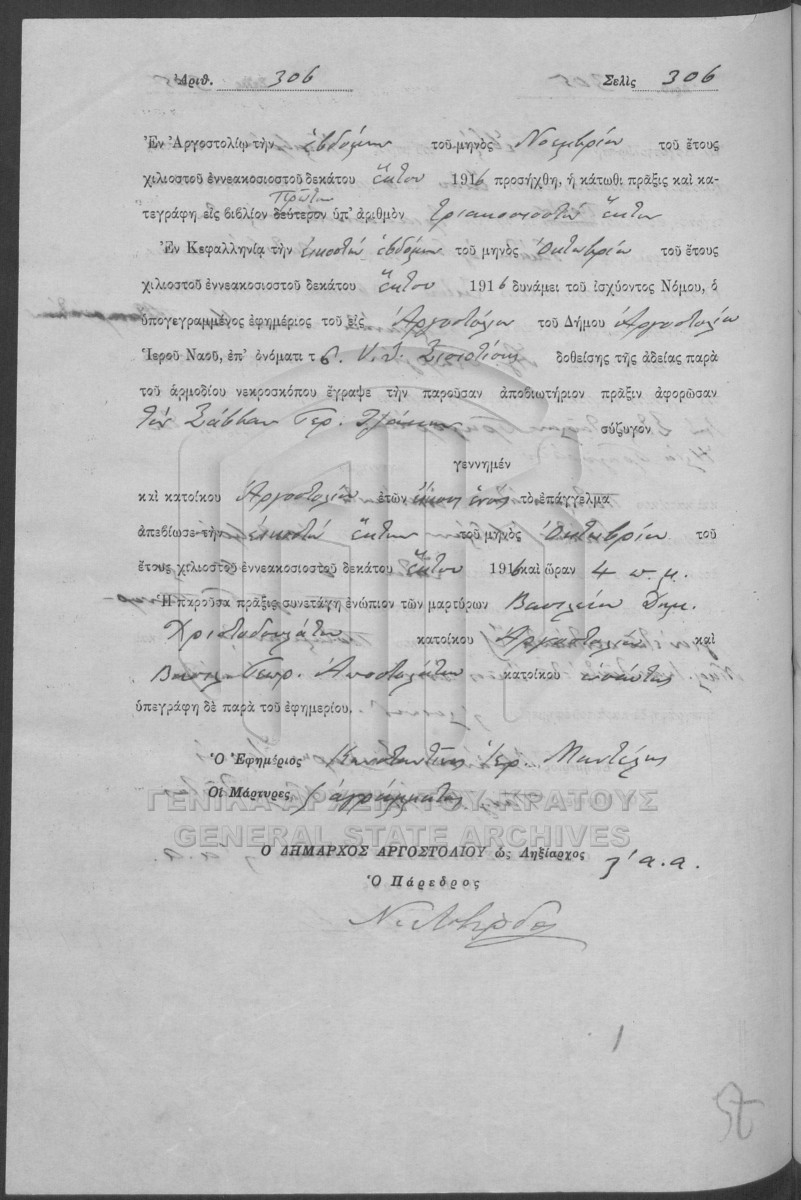 Ἀριθ. 306 Σελὶς 306
Ἐν Ἀργοστολίῳ τὴν ἑβδόμην τοῦ μηνὸς Νοεμβρίου τοῦ ἔτους
χιλιοστοῦ ἐννεακοσιοστοῦ δεκάτου ἕκτου 1916 προσήχθη, ἡ κάτωθι πρᾶξις καὶ κα-
πρῶτον
τεγράφη εἰς βιβλίον δεύτερον ὑπ' ἀριθμὸν τριακοσιοστὸν ἕκτον
Ἐν Κεφαλληνίᾳ τὴν εἰκοστὴν ἑβδόμην τοῦ μηνὸς Ὀκτωβρίου τοῦ ἔτους
χιλιοστοῦ ἐννεακοσιοστοῦ δεκάτου ἕκτου 1916 δυνάμει τοῦ ἰσχύοντος Νόμου, ὁ
ὑπογεγραμμένος ἐφημέριος τοῦ εἰς Ἀργοστόλιον τοῦ Δήμου Ἀργοστολίου
Ἱεροῦ Ναοῦ, ἐπ' ὀνόματι τ Σισιωτίσης δοθείσης τῆς ἀδείας παρὰ
τοῦ ἁρμοδίου νεκροσκόπου ἔγραψε τὴν παροῦσαν ἀποβιωτήριον πρᾶξιν ἀφορῶσαν
τὸν Σάββαν Γερ. σύζυγον
γεννημέν
καὶ κατοίκου Ἀργοστολίου ἐτῶν εἴκοσι ἑνός τὸ ἐπάγγελμα
ἀπεβίωσε τὴν εἰκοστὴν ἕκτην τοῦ μηνὸς Ὀκτωβρίου τοῦ
ἔτους χιλιοστοῦ ἐννεακοσιοστοῦ δεκάτου ἕκτου 1916 καὶ ὥραν 4 π.μ.
Ἡ παροῦσα πρᾶξις συνετάγη ἐνώπιον τῶν μαρτύρων Βασιλείου Δημ.
Χριστοδουλάτου κατοίκου Ἀργοστολίου καὶ
Βασιλ. Γεωρ. Ἀποστολάτου κατοίκου ὡσαύτως.
ὑπεγράφη δὲ παρὰ τοῦ ἐφημερίου.
Ὁ Ἐφημέριος Κωνσταντῖνος Ἱερ. Μαντζάς
Οἱ Μάρτυρες ἀγράμματοι
ΓΕΝΙΚΑ ΑΡΧΕΙΑ ΤΟΥ ΚΡΑΤΟΥΣ
GENERAL STATE ARCHIVES
Ο ΔΗΜΑΡΧΟΣ ΑΡΓΟΣΤΟΛΙΟΥ ὡς Ληξίαρχος α.α.
Ὁ Πάρεδρος